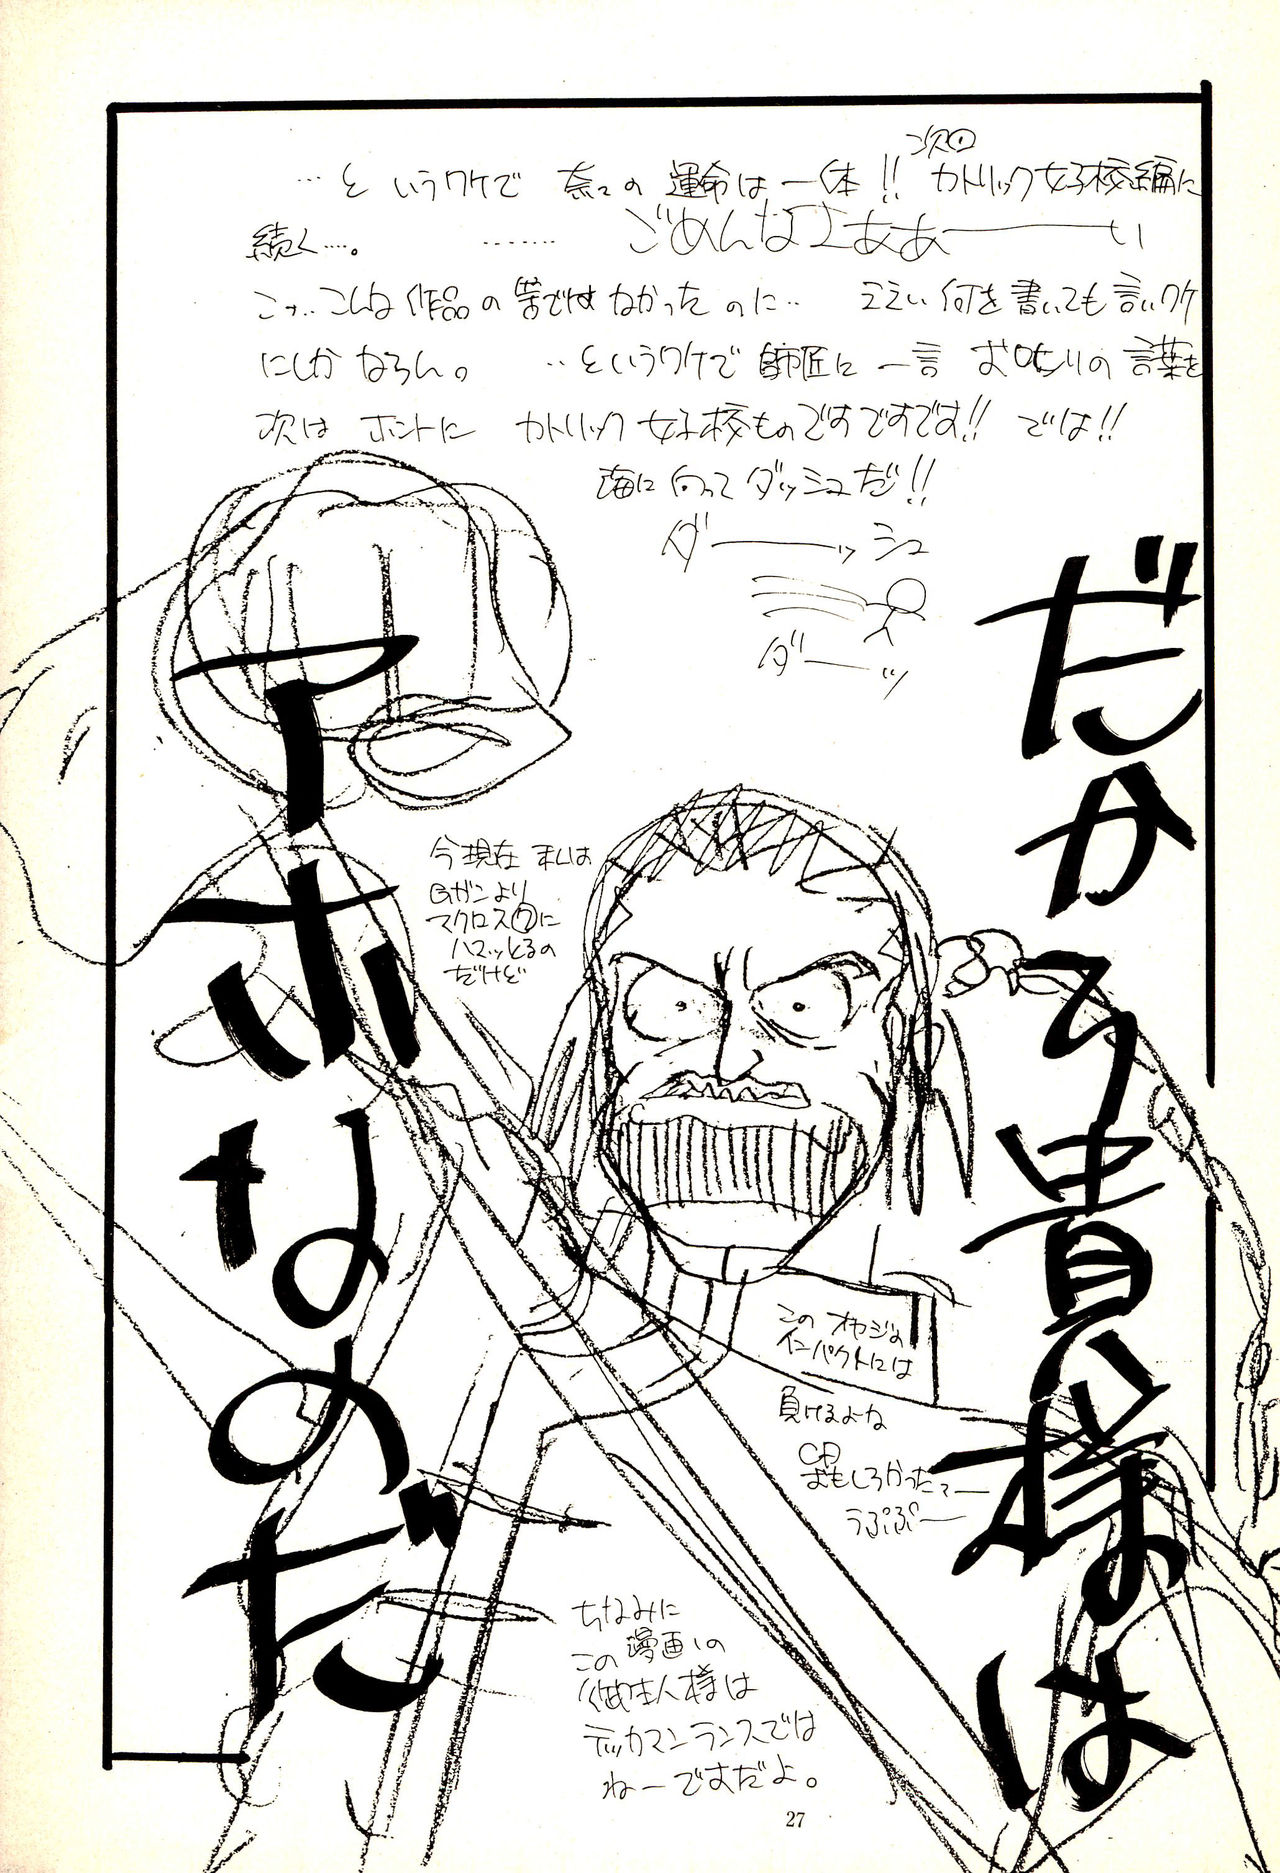 次回
…というワケで 奈々の運命は一体!! カトリック女子校編に
続く…。 ……… ごめんなさああ———い
こっ‥こんな作品の筈ではなかったのに‥ ええい何を書いても言いワケ
にしかならん。 ‥というワケで師匠に一言 お叱りの言葉を
次はホントに カトリック女子校ものですですです!! では!!
海に向ってダッシュだ!!
ダ———ッシュ
ダ——ッ
だから貴様は
アホなのだ
今現在 私は
Gガンより
マクロス7に
ハマッとるの
だけど
このオヤジの
インパクトには
負けるよな
CD
おもしろかったてー
うぷぷー
ちなみに
この漫画の
御主人様は
テッカマンランスでは
ねーですだよ。
27